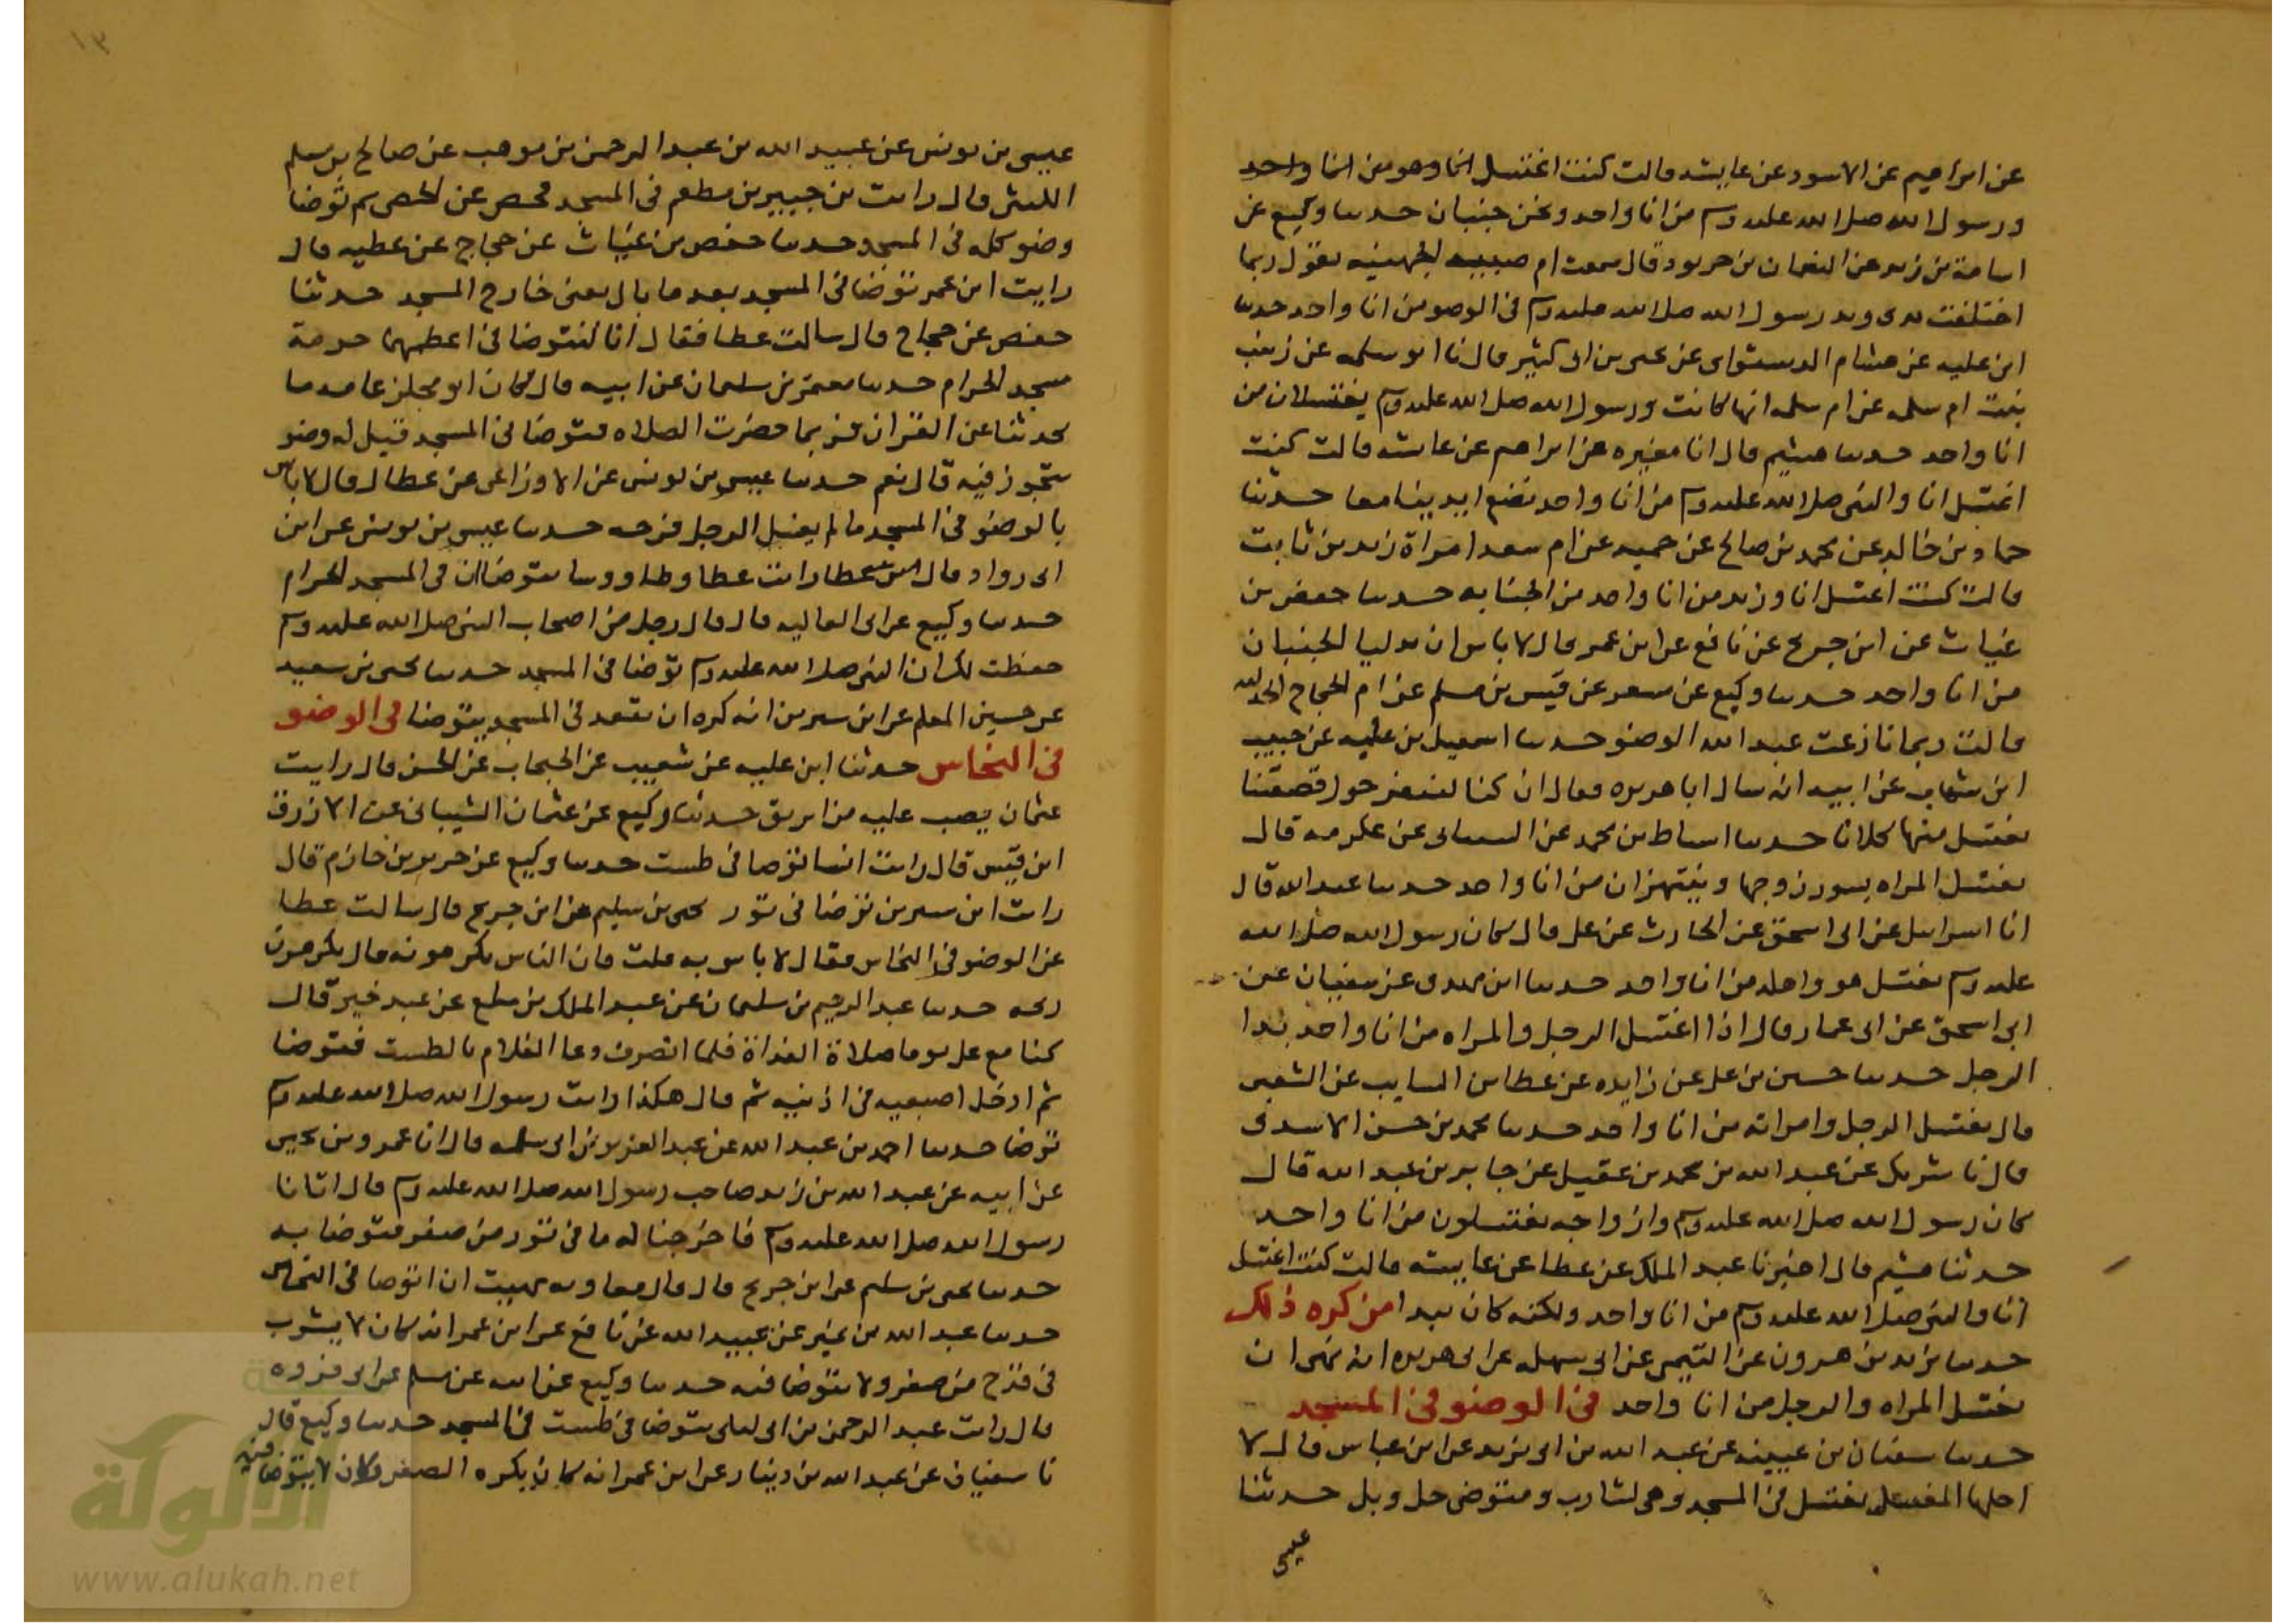 عن ابراهيم عن الاسود عن عايشه قالت كنت اغتسل انا وهو من انا واحد
ورسول الله صلى الله عليه وسلم من انا واحد ونحن جنبان حدثنا وكيع عن
اسامة بن زيد عن النعمان بن خربوذ قال سمعت ام صبيه الجهنيه تقول ربما
اختلفت يدى ويد رسول الله صلى الله عليه وسلم فى الوضو من انا واحد حدثنا
ابن عليه عن هشام الدستواى عن يحيى بن ابى كثير قال نا ابو سلمه عن زينب
بنت ام سلمه عن ام سلمه انها كانت ورسول الله صلى الله عليه وسلم يغتسلان من
انا واحد حدثنا هشيم قال انا مغيره عن ابراهيم عن عايشه قالت كنت
اغتسل انا والنبى صلى الله عليه وسلم من انا واحد نضع ايدينا معا حدثنا
حماد بن خالد عن محمد بن صالح عن حميد عن ام سعد امراة زيد بن ثابت
قالت كنت اغتسل انا وزيد من انا واحد من الجنابه حدثنا حفص بن
غياث عن ابن جريج عن نافع عن ابن عمر قال لا باس ان يدليا الجنبان
من انا واحد حدثنا وكيع عن مسعر عن قيس بن مسلم عن ام الحجاج الجدليه
قالت ربما نازعت عبد الله الوضو حدثنا اسمعيل بن عليه عن حبيب
ابن شهاب عن ابيه انه سال ابا هريره فقال ان كنا لننقز حول قصعتنا
نغتسل منها كلانا حدثنا اسباط بن محمد عن الشيبانى عن عكرمه قال
تغتسل المراه بسور زوجها وينتهزان من انا واحد حدثنا عبد الله قال
انا اسرايل عن ابى اسحق عن الحارث عن على قال كان رسول الله صلى الله
عليه وسلم يغتسل هو واهله من انا واحد حدثنا ابن مهدى عن سفيان عن
ابى اسحق عن ابى عمار قال اذا اغتسل الرجل والمراه من انا واحد بدا
الرجل حدثنا حسين بن على عن زايده عن عطا بن السايب عن الشعبى
قال يغتسل الرجل وامراته من انا واحد حدثنا محمد بن حسن الاسدى
قال نا شريك عن عبد الله بن محمد بن عقيل عن جابر بن عبد الله قال
كان رسول الله صلى الله عليه وسلم وازواجه يغتسلون من انا واحد
حدثنا هشيم قال اخبرنا عبد الملك عن عطا عن عايشه قالت كنت اغتسل
انا والنبى صلى الله عليه وسلم من انا واحد ولكنه كان يبدا من كره ذلك
حدثنا يزيد بن هرون عن التيمى عن ابى سهله عن ابى هريره انه نهى ان
تغتسل المراه والرجل من انا واحد فى الوضو فى المسجد
حدثنا سفيان بن عيينه عن عبيد الله بن ابى يزيد عن ابن عباس قال لا
احلها لمغتسل يغتسل فى المسجد وهى لشارب ومتوضى حل وبل حدثنا
عيسى
١٣
عيسى بن يونس عن عبيد الله بن عبد الرحمن بن موهب عن صالح بن مسلم
الليثى قال رايت بن جبير بن مطعم فى المسجد فحص عن الحصى ثم توضا
وضو كله فى المسجد حدثنا حفص بن غياث عن حجاج عن عطيه قال
رايت ابن عمر توضا فى المسجد بعد ما بال يعنى خارج المسجد حدثنا
حفص عن حجاج قال سالت عطا فقال انا لنتوضا فى اعظمها حرمة
مسجد الحرام حدثنا معتمر بن سليمان عن ابيه قال كان ابو مجلز عامدما
يحدثنا عن القران فربما حضرت الصلاه فتوضا فى المسجد قيل له وضو
يتجوز فيه قال نعم حدثنا عيسى بن يونس عن الاوزاعى عن عطا قال لا باس
بالوضو فى المسجد ما لم يغسل الرجل فرجه حدثنا عيسى بن يونس عن ابن
ابى رواد قال رايت عطا وطاووسا يتوضان فى المسجد الحرام
حدثنا وكيع عن ابى العاليه قال قال رجل من اصحاب النبى صلى الله عليه وسلم
حفظت لك ان النبى صلى الله عليه وسلم توضا فى المسجد حدثنا يحيى بن سعيد
عن حسين المعلم عن ابن سيرين انه كره ان يقعد فى المسجد يتوضا فى الوضو
فى النحاس حدثنا ابن عليه عن شعيب عن الحبحاب عن الحسن قال رايت
عثمان يصب عليه من ابريق حدثنا وكيع عن عثمان الشيبانى عن الازرق
ابن قيس قال رايت انسا توضا فى طست حدثنا وكيع عن جرير بن حازم قال
رايت ابن سيرين توضا فى تور يحيى بن سليم عن ابن جريج قال سالت عطا
عن الوضو فى النحاس فقال لا باس به قلت فان الناس يكرهونه قال يكرهون
ريحه حدثنا عبد الرحيم بن سليمان عن عبد الملك بن سلع عن عبد خير قال
كنا مع على يوما صلاة الغداة فلما انصرف دعا الغلام بالطست فتوضا
ثم ادخل اصبعيه فى اذنيه ثم قال هكذا رايت رسول الله صلى الله عليه وسلم
توضا حدثنا احمد بن عبد الله عن عبد العزيز بن ابى سلمه قال انا عمرو بن يحيى
عن ابيه عن عبد الله بن زيد صاحب رسول الله صلى الله عليه وسلم قال اتانا
رسول الله صلى الله عليه وسلم فاخرجنا له ما فى تور من صفر فتوضا به
حدثنا يحيى بن سليم عن ابن جريج قال قال معاويه نهيت ان اتوضا فى النحاس
حدثنا عبد الله بن نمير عن عبيد الله عن نافع عن ابن عمر انه كان لا يشرب
فى قدح من صفر ولا يتوضا فيه حدثنا وكيع عن ابيه عن مسلم عن ابى فروه
قال رايت عبد الرحمن بن ابى ليلى يتوضا فى طست فى المسجد حدثنا وكيع قال
نا سفيان عن عبد الله بن دينار عن ابن عمر انه كان يكره الصفر وكان لا يتوضا فيه
الألوكة
www.alukah.net